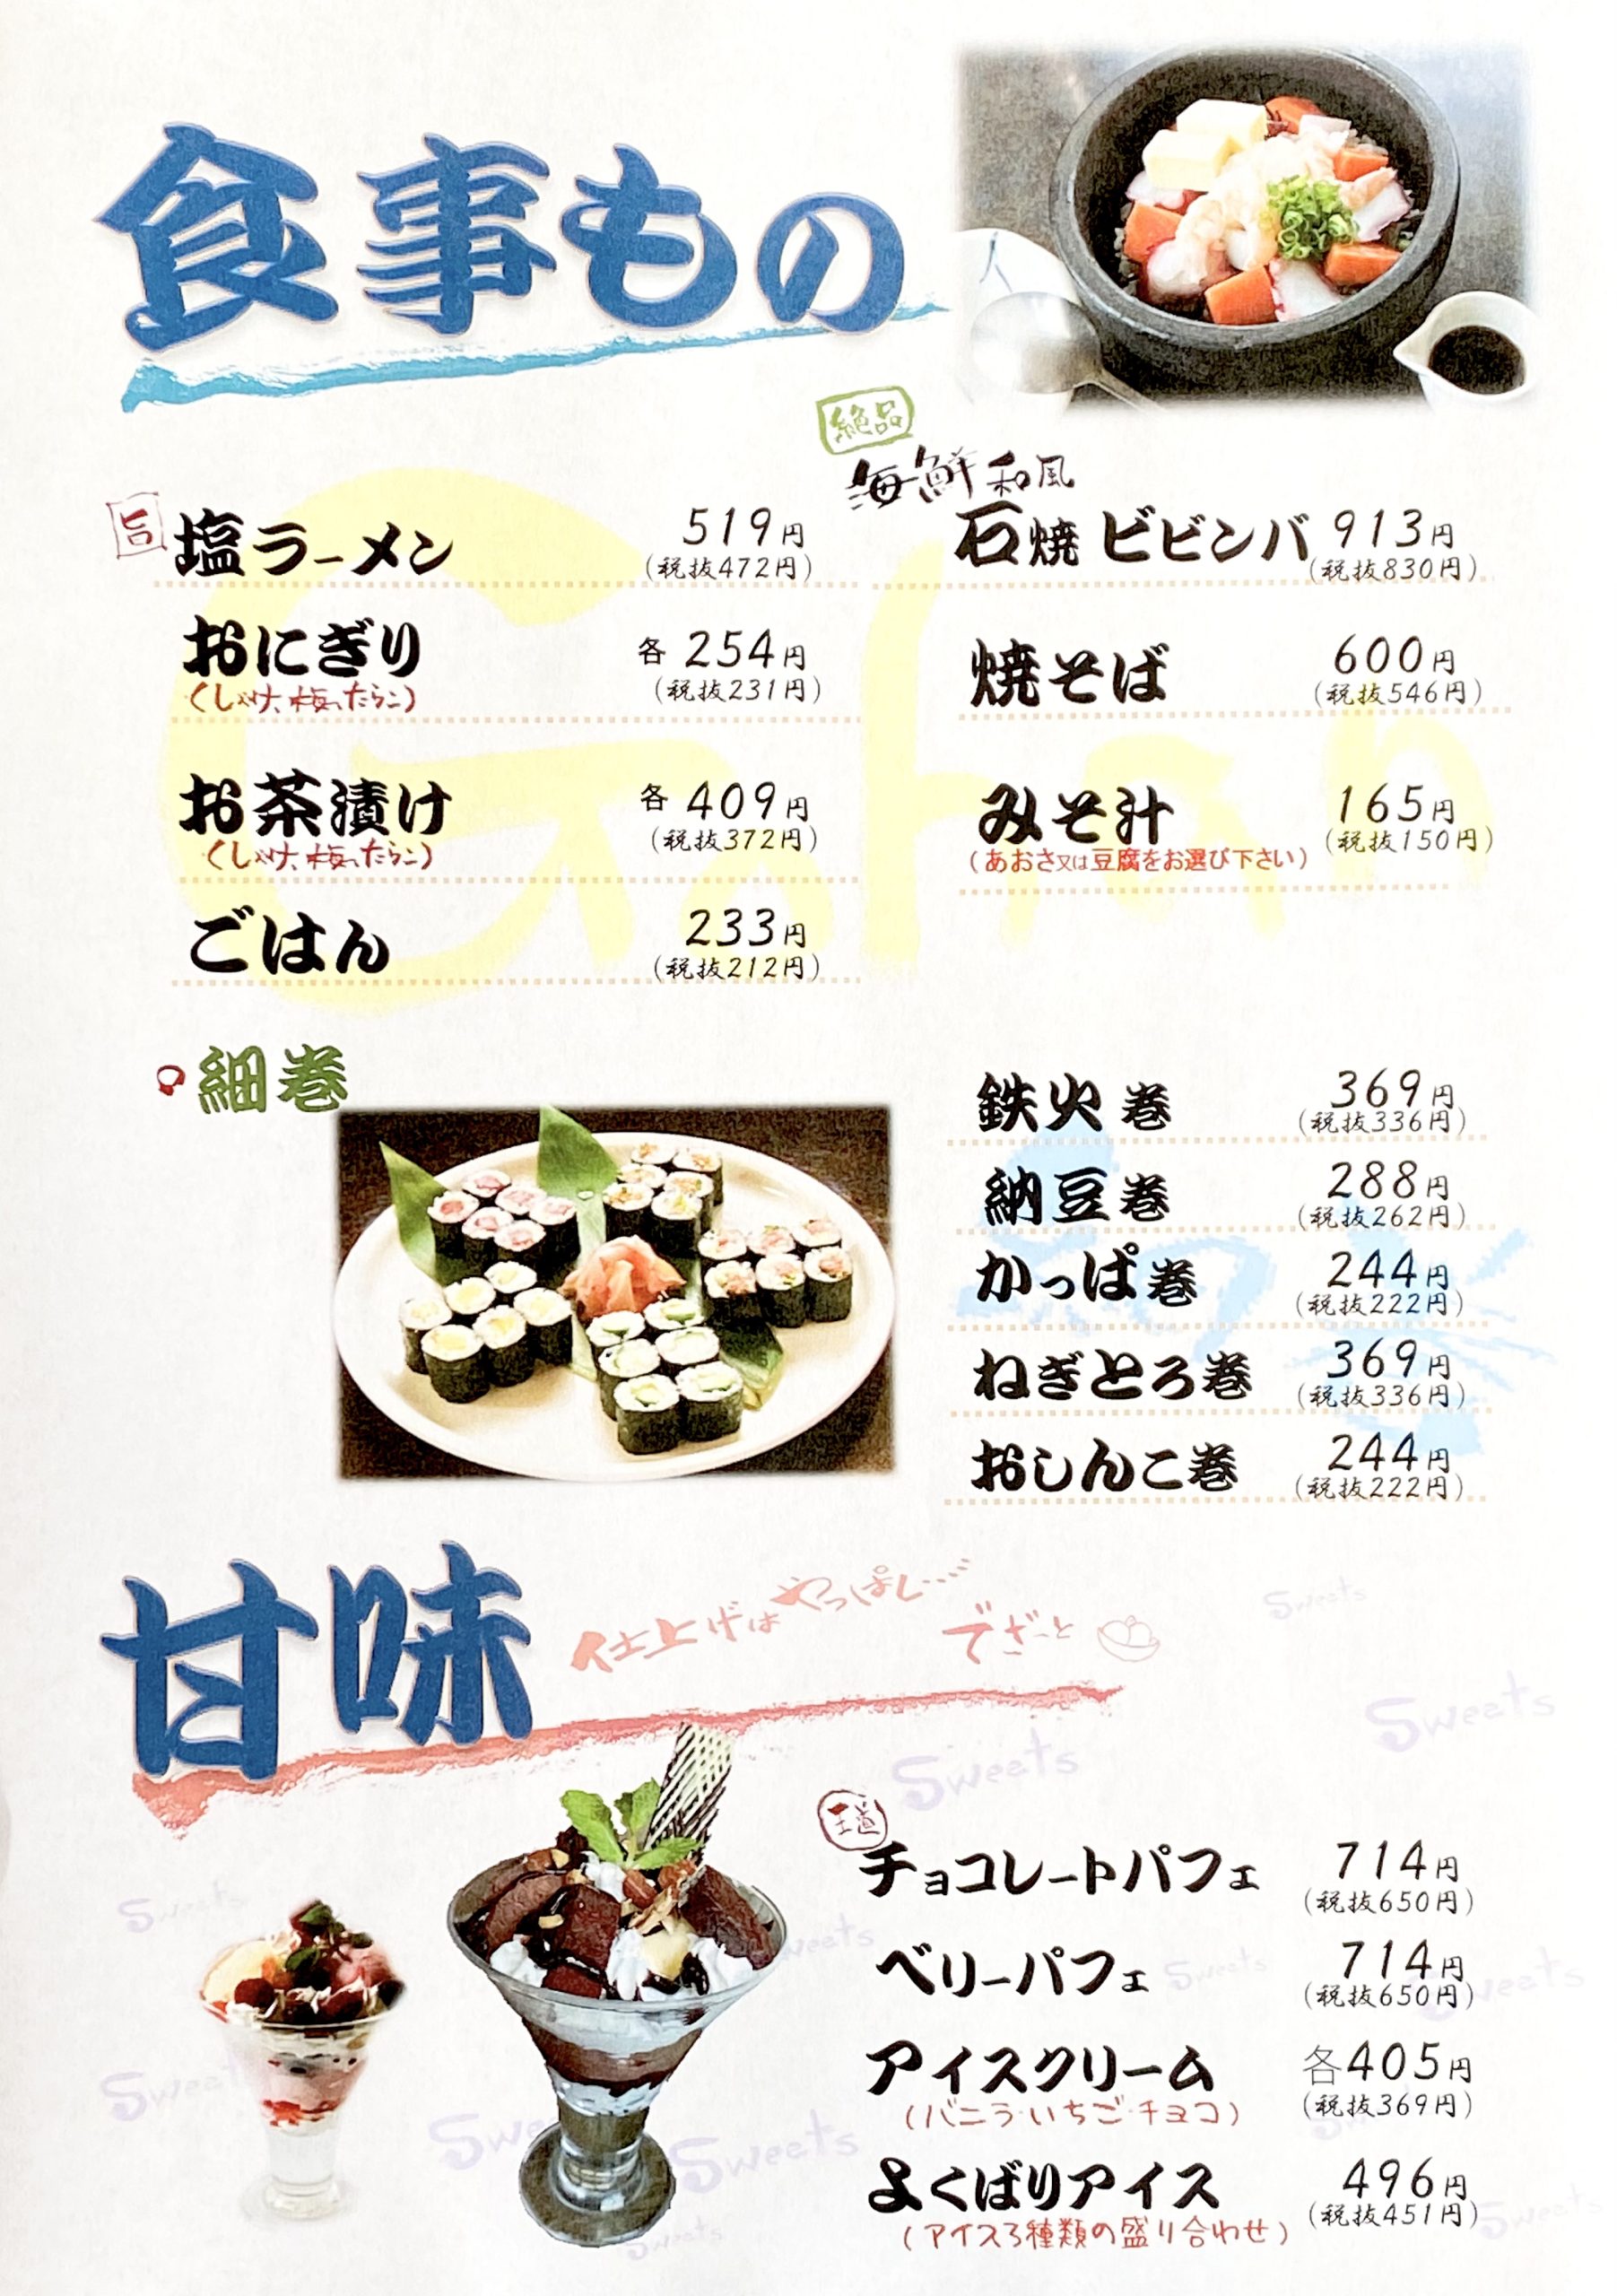 食事もの
絶品
海鮮和風
旨 塩ラーメン 519円
(税抜472円)
石焼ビビンバ 913円
(税抜830円)
おにぎり 各254円
(しゃけ、梅、たらこ) (税抜231円)
焼そば 600円
(税抜546円)
お茶漬け 各409円
(しゃけ、梅、たらこ) (税抜372円)
みそ汁 165円
(あおさ又は豆腐をお選び下さい) (税抜150円)
ごはん 233円
(税抜212円)
Gohan
細巻
鉄火巻 369円
(税抜336円)
納豆巻 288円
(税抜262円)
かっぱ巻 244円
(税抜222円)
ねぎとろ巻 369円
(税抜336円)
おしんこ巻 244円
(税抜222円)
甘味
仕上げはやっぱし・・・・
でざーと
Sweets
Sweets
Sweets
王道
チョコレートパフェ 714円
(税抜650円)
Sweets
Sweets
ベリーパフェ 714円
(税抜650円)
Sweets
Sweets
アイスクリーム 各405円
(バニラ・いちご・チョコ) (税抜369円)
Sweets
Sweets
Sweets
よくばりアイス 496円
(アイス3種類の盛り合わせ) (税抜451円)
Sweets
Sweets